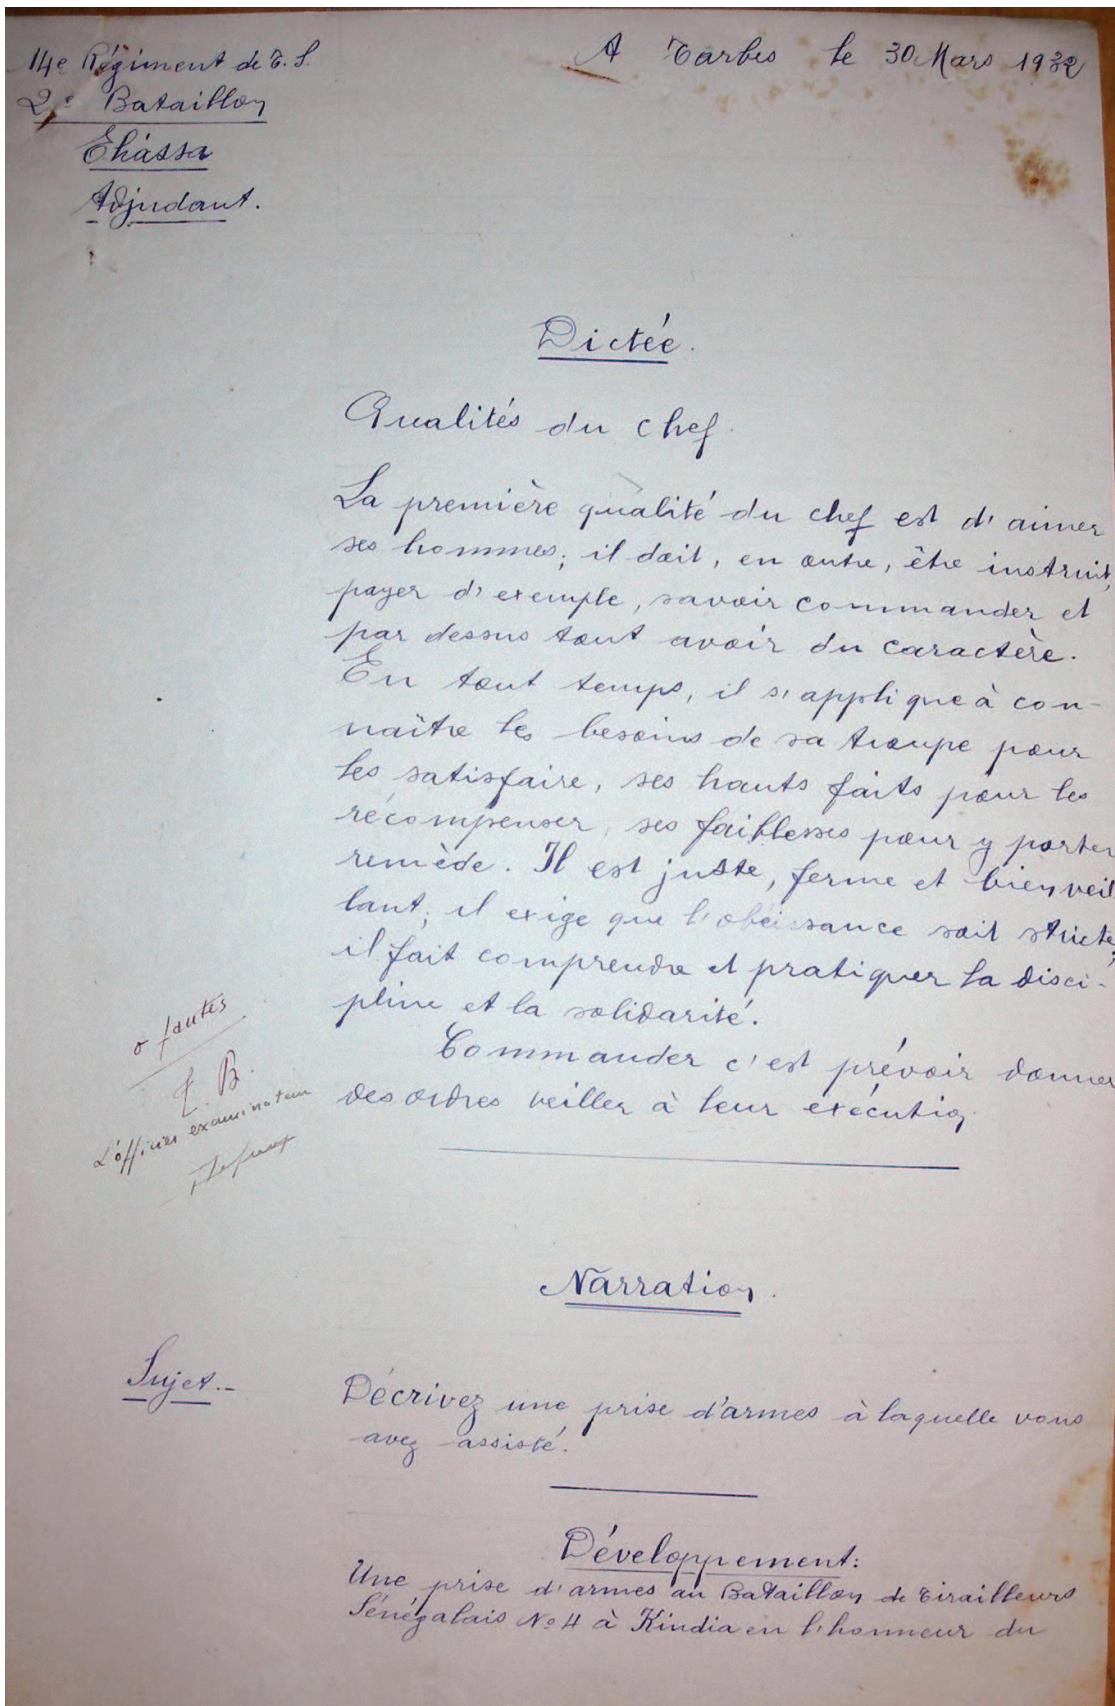 14e Régiment de T. S.
A Tarbes le 30 Mars 1932
2e Bataillon
Ehássa
Adjudant.
Dictée.
Qualités du chef.
La première qualité du chef est d'aimer
ses hommes; il doit, en outre, être instruit,
payer d'exemple, savoir commander et
par dessus tout avoir du caractère.
En tout temps, il s'applique à con-
naître les besoins de sa troupe pour
les satisfaire, ses hauts faits pour les
récompenser, ses faiblesses pour y porter
remède. Il est juste, ferme et bienveil
lant; il exige que l'obéissance soit stricte;
il fait comprendre et pratiquer la disci-
pline et la solidarité.
Commander c'est prévoir donner
des ordres veiller à leur exécution
0 fautes
T. B.
L'officier examinateur
Narration.
Sujet.-
Décrivez une prise d'armes à laquelle vous
avez assisté.
Développement:
Une prise d'armes au Bataillon de Tirailleurs
Sénégalais No 4 à Kindia en l'honneur du